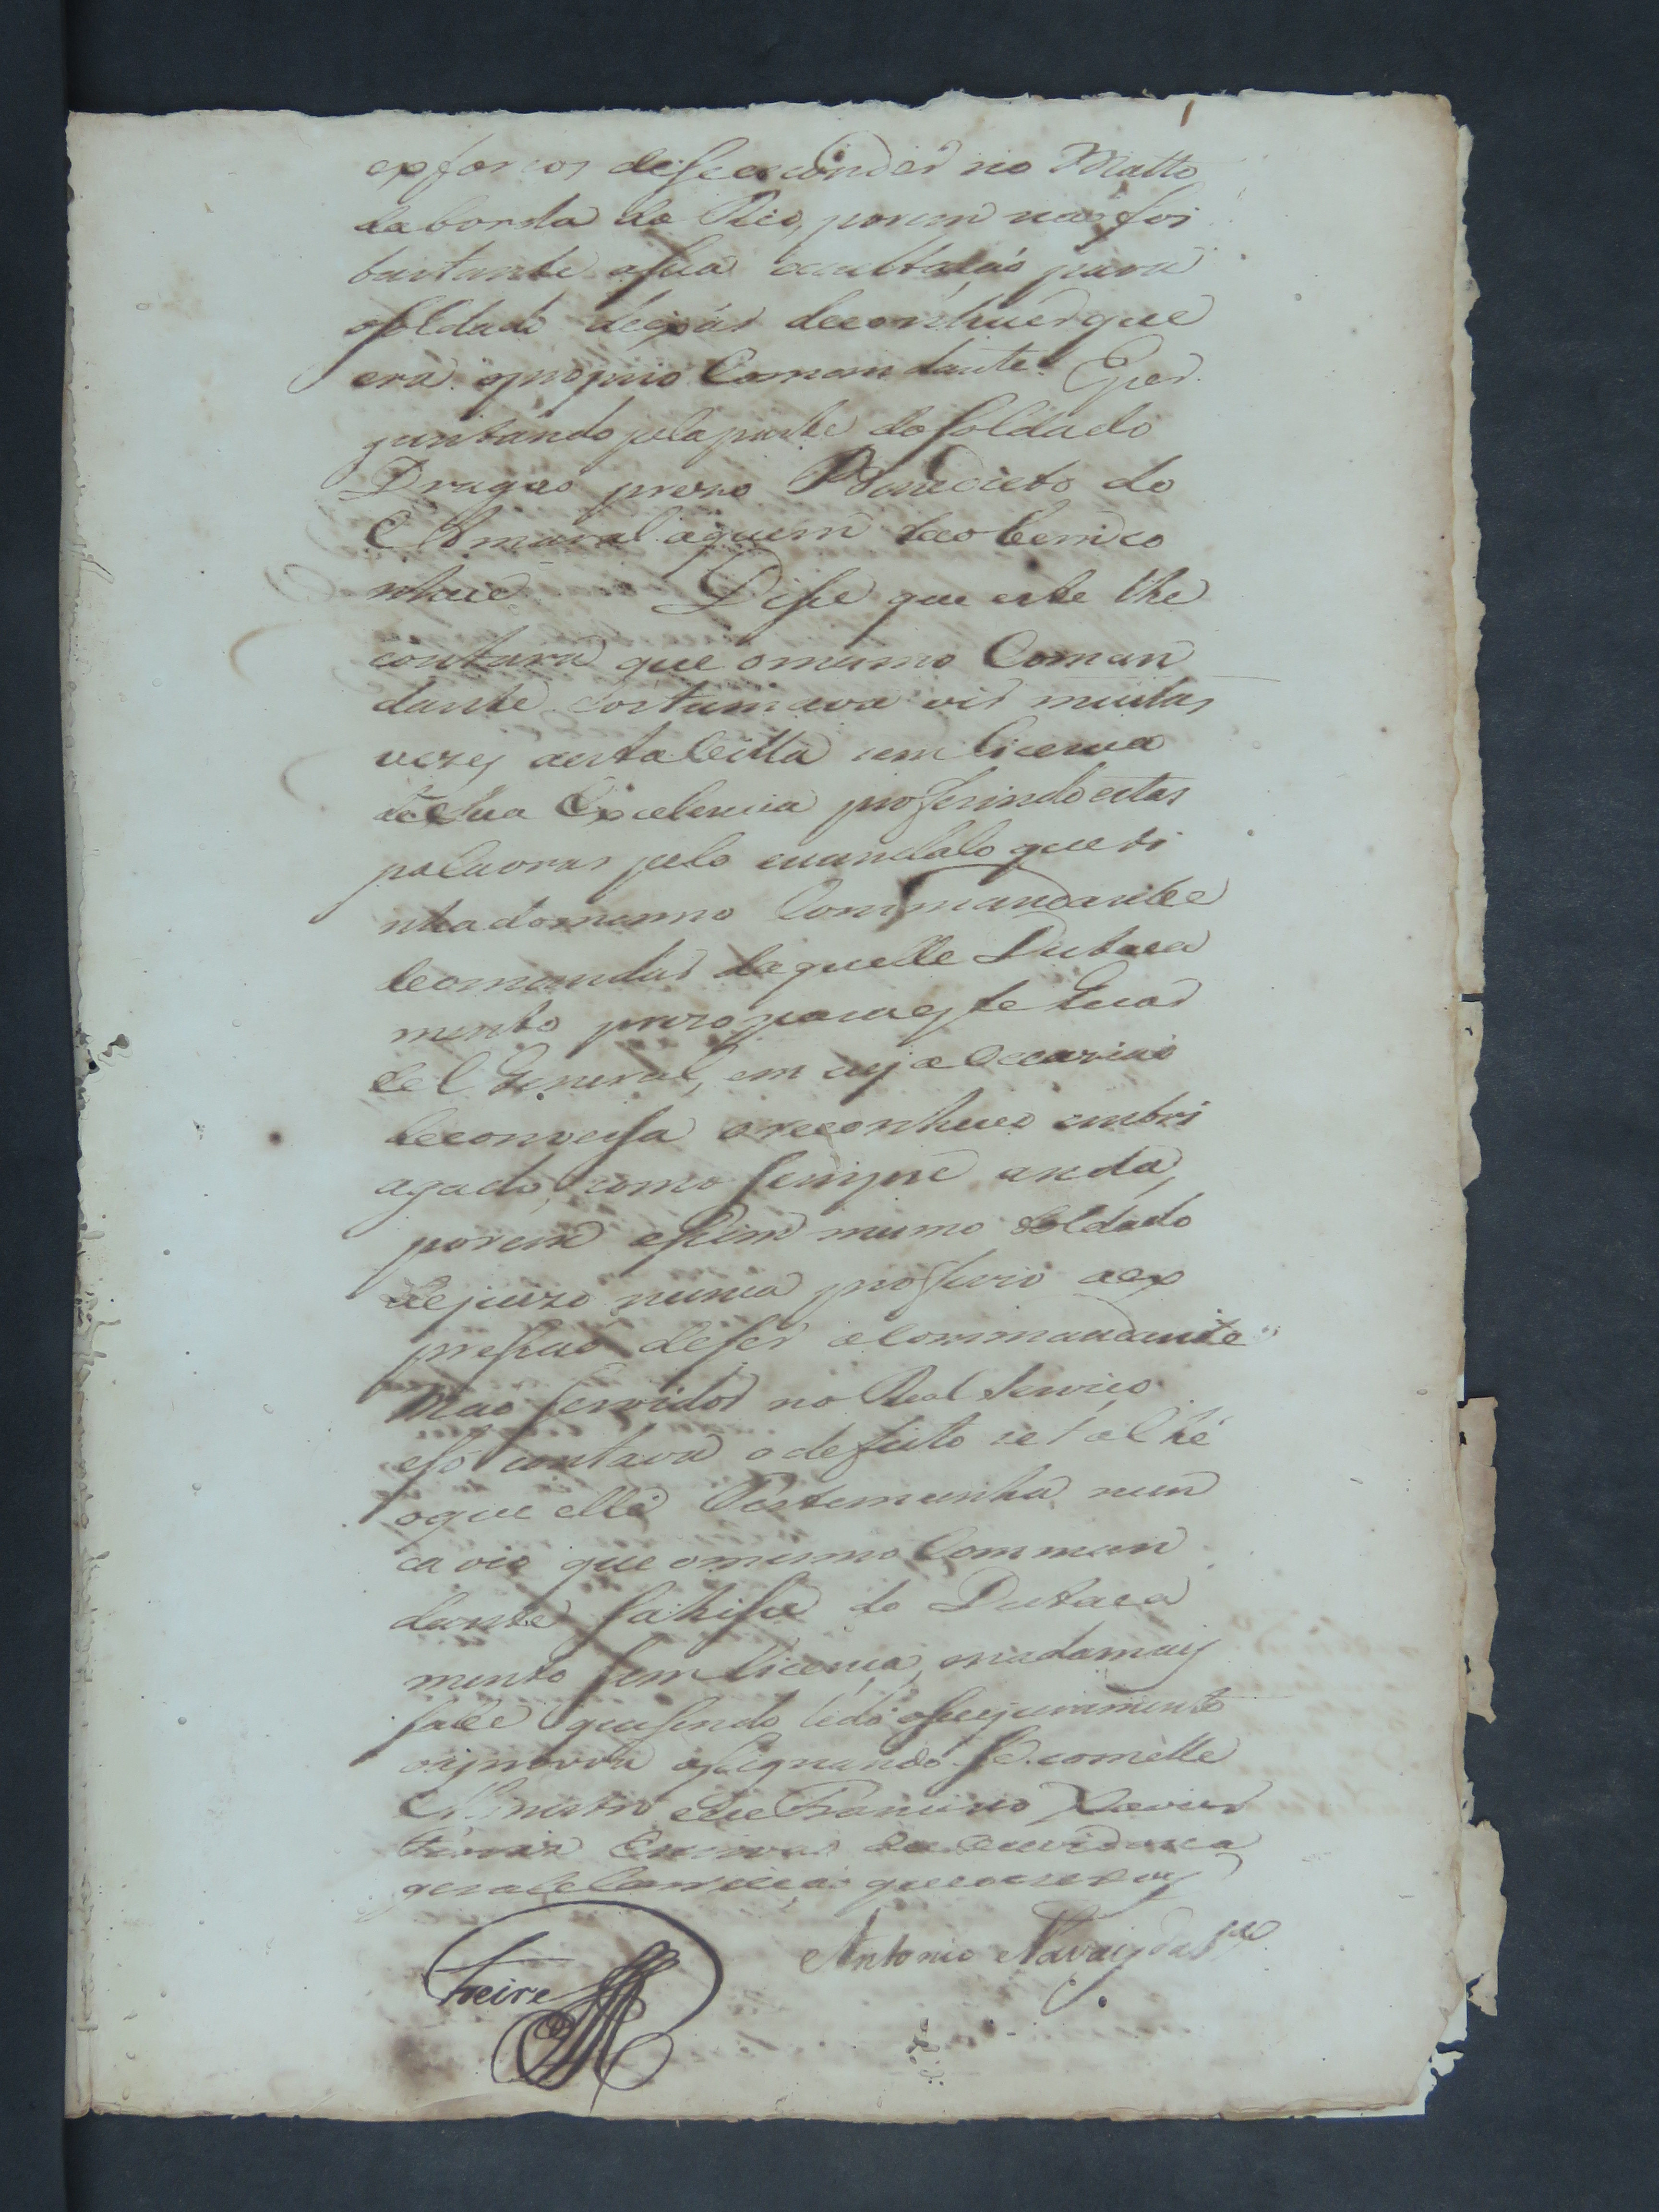 exforcos deSeexconder no Matto
da borda do Rio, porem não foi
bastante aSua ocultação para
oSoldado deixar deconhecer que
era oproprio Comandante. Eper
guntando pela parte do Soldado
Dragao prezo Benedicto do
Amaral aquem taobem co
nhece Disse que este lhe
contara que omesmo Coman
dante costumava vir muitas
vezes aesta Villa sem licenca
de Sua Excelencia proferindo estas
palavras pelo escandalo que ti
nha domesmo Commandante
deomandar daquelle Destaca
mento prezo para este Quar
tel General, em cuja occazião
deconversa oreconheceo embri
agado, como Sempre anda,
porem assim mesmo Soldado
dejuizo nunca proferio aex
pressaõ deSer oCommandante
Mao Servidor no Real Serviço
eSó contava odefeito
oque elle Testemunha nun
ca vio que omesmo Comman
dante Sahisse do Destaca
mento Sem licença, enadamais
Sabe queSendo lido oSeujuramento
oaprovou assignando Se comelle
Ministro eEu Francisco Xavier
Escrivaõ da Ouvidoria
geral eCorreiçaõ queoescrevy
Freire
Antonio Navais da Sª